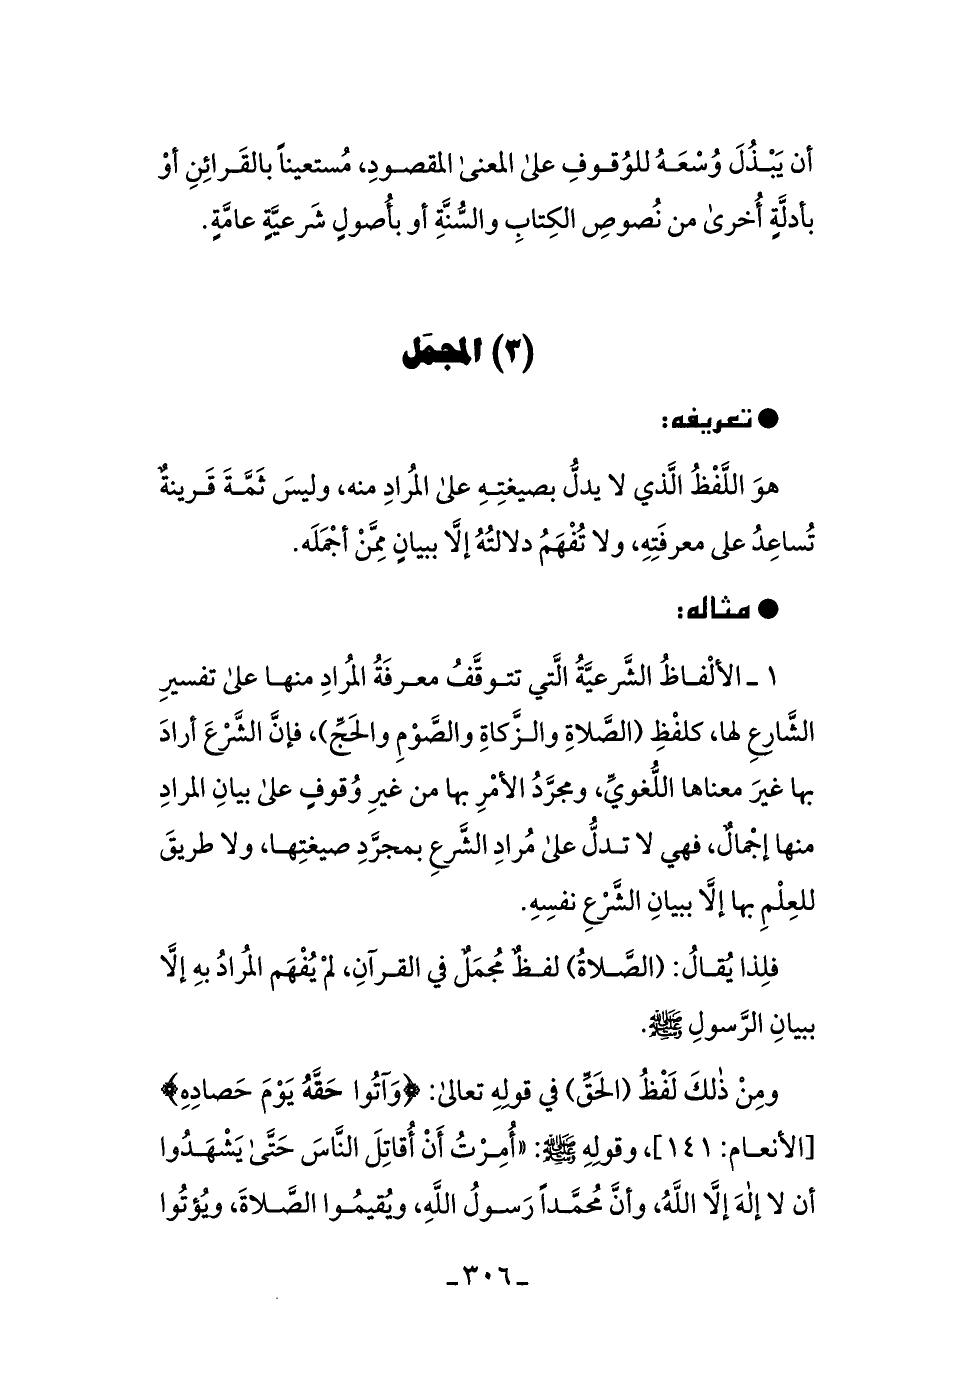 أن يَبْـذُلَ وُسْعَـهُ للوُقـوفِ علىٰ المعنىٰ المقصـودِ، مُستعيناً بالقَـرائِنِ أوْ
بأدلَّةٍ أُخرىٰ من نُصوصِ الكِتابِ والسُّنَّةِ أو بأُصولٍ شَرعيَّةٍ عامَّةٍ.
(٣) المجمَل
● تعريفه:
هوَ اللَّفْظُ الَّذي لا يدلُّ بصيغتِـهِ علىٰ المُرادِ منه، وليسَ ثَمَّـةَ قَـرينةٌ
تُساعِدُ على معرفَتِهِ، ولا تُفْهَمُ دلالتُهُ إلَّا ببيانٍ مِمَّنْ أجْمَلَه.
● مثاله:
١ ـ الألْفـاظُ الشَّرعيَّةُ الَّتي تتـوقَّفُ معـرفَةُ المُرادِ منهـا علىٰ تفسيرِ
الشَّارِعِ لها، كلفْظِ (الصَّلاةِ والـزَّكاةِ والصَّوْمِ والحَجِّ)، فإنَّ الشَّرْعَ أرادَ
بها غيرَ معناها اللُّغويِّ، ومجرَّدُ الأمْرِ بها من غيرِ وُقوفٍ علىٰ بيانِ المرادِ
منها إجْمالٌ، فهي لا تـدلُّ علىٰ مُرادِ الشَّرعِ بمجرَّدِ صيغتِهـا، ولا طريقَ
للعِلْمِ بها إلَّا ببيانِ الشَّرْعِ نفسِهِ.
فلِذا يُقـالُ: (الصَّـلاةُ) لفـظٌ مُجمَلٌ في القـرآنِ، لمْ يُفْهَم المُرادُ بهِ إلَّا
ببيانِ الرَّسولِ ﷺ.
ومِنْ ذٰلكَ لَفْظُ (الحَقِّ) في قولِهِ تعالىٰ: ﴿وَآتُوا حَقَّهُ يَوْمَ حَصادِهِ﴾
[الأنعـام: ١٤١]، وقولِهِ ﷺ: «أُمِـرْتُ أنْ أُقاتِلَ النَّاسَ حَتَّىٰ يَشْهَـدُوا
أن لا إلٰهَ إلَّا اللَّهُ، وأنَّ مُحمَّـداً رَسـولُ اللَّهِ، ويُقيمُـوا الصَّـلاةَ، ويُؤتُوا
ـ ٣٠٦ ـ